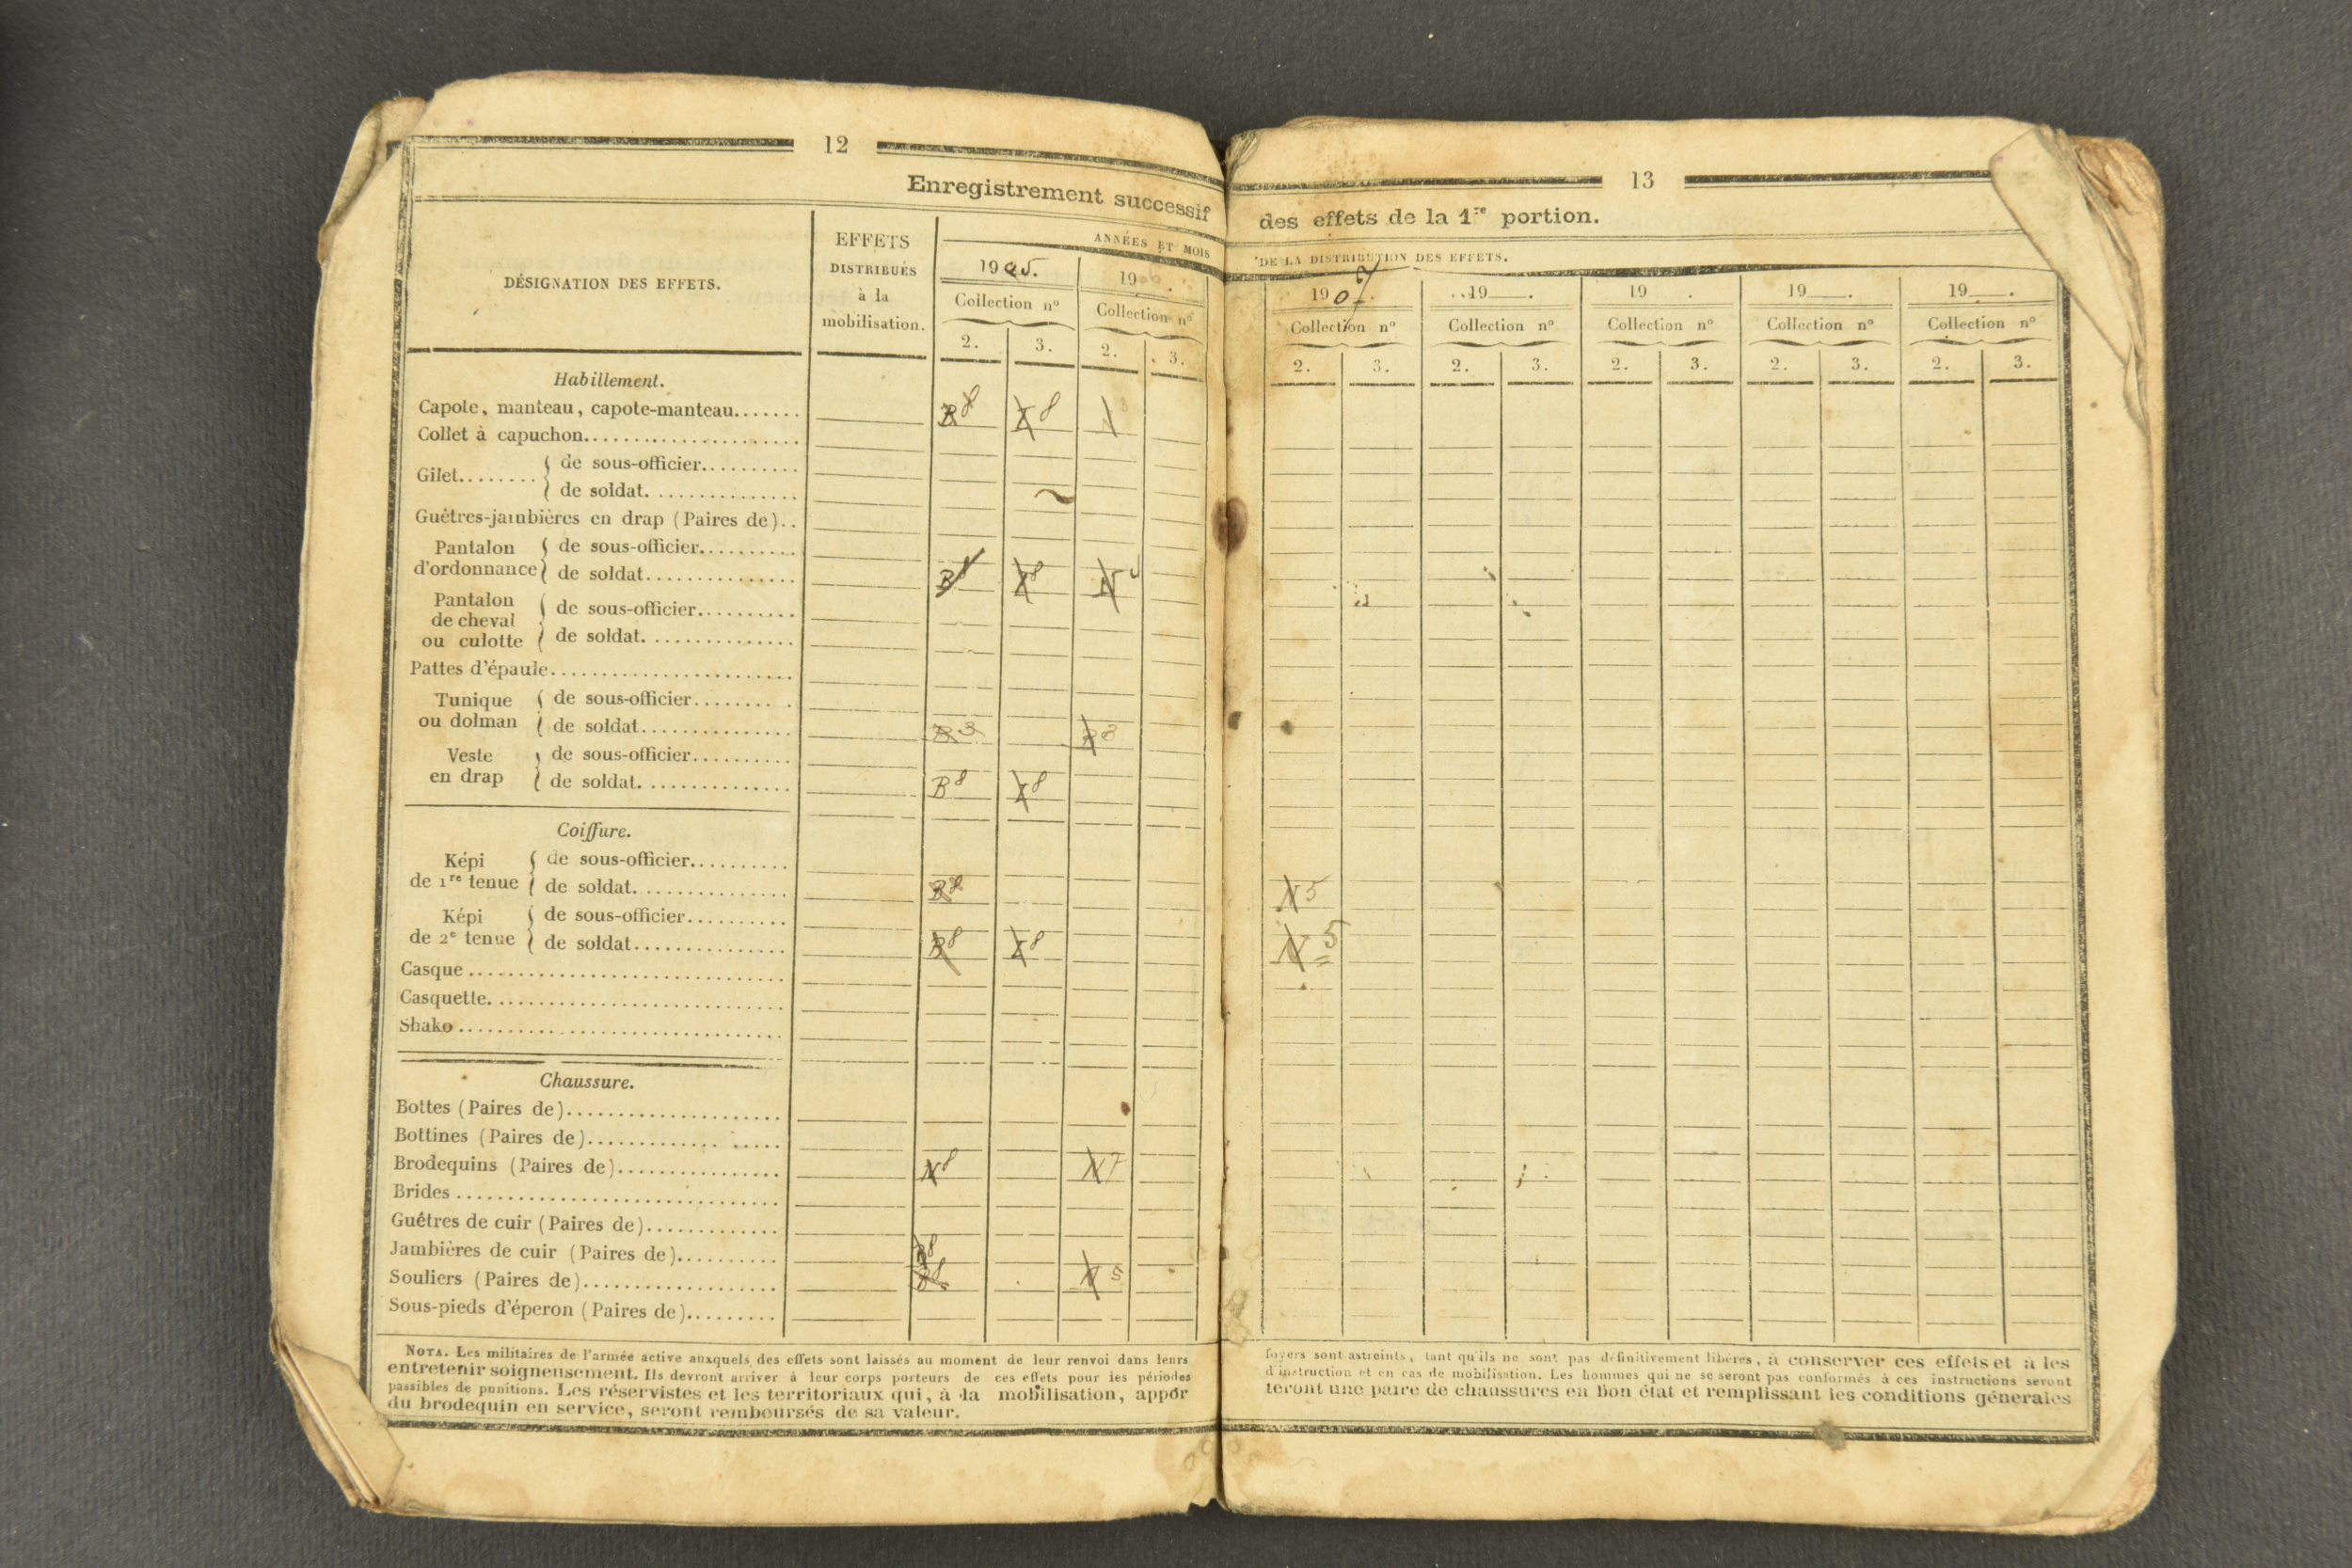 12
Enregistrement successif
DÉSIGNATION DES EFFETS.
EFFETS
DISTRIBUÉS
à la
mobilisation.
ANNÉES ET MOIS
1905.
19 .
Collection nº
Collection nº
2. 3. 2. 3.
Habillement.
Capote, manteau, capote-manteau....... B8 8
Collet à capuchon.....................
Gilet........ { de sous-officier..........
{ de soldat...............
Guêtres-jambières en drap (Paires de)..
Pantalon { de sous-officier..........
d'ordonnance { de soldat............... B8 8
Pantalon
de cheval { de sous-officier..........
ou culotte { de soldat...............
Pattes d'épaule........................
Tunique { de sous-officier..........
ou dolman { de soldat............... 3 3
Veste { de sous-officier..........
en drap { de soldat............... B8 8
Coiffure.
Képi { de sous-officier..........
de 1re tenue { de soldat............... B8
Képi { de sous-officier..........
de 2e tenue { de soldat............... B8 8
Casque...............................
Casquette.............................
Shako................................
Chaussure.
Bottes (Paires de).....................
Bottines (Paires de)...................
Brodequins (Paires de)................ N8 N7
Brides................................
Guêtres de cuir (Paires de).............
Jambières de cuir (Paires de).......... B8
Souliers (Paires de)................... B8 N 5
Sous-pieds d'éperon (Paires de).........
NOTA. Les militaires de l'armée active auxquels des effets sont laissés au moment de leur renvoi dans leurs
entretenir soigneusement. Ils devront arriver à leur corps porteurs de ces effets pour les périodes
passibles de punitions. Les réservistes et les territoriaux qui, à la mobilisation, appor
du brodequin en service, seront remboursés de sa valeur.
13
des effets de la 1re portion.
DE LA DISTRIBUTION DES EFFETS.
1907. 19 . 19 . 19 . 19 .
Collection nº Collection nº Collection nº Collection nº Collection nº
2. 3. 2. 3. 2. 3. 2. 3. 2. 3.
N5
N 5
foyers sont astreints, tant qu'ils ne sont pas définitivement libérés, à conserver ces effets et à les
d'instruction et en cas de mobilisation. Les hommes qui ne se seront pas conformés à ces instructions seront
teront une paire de chaussures en bon état et remplissant les conditions générales